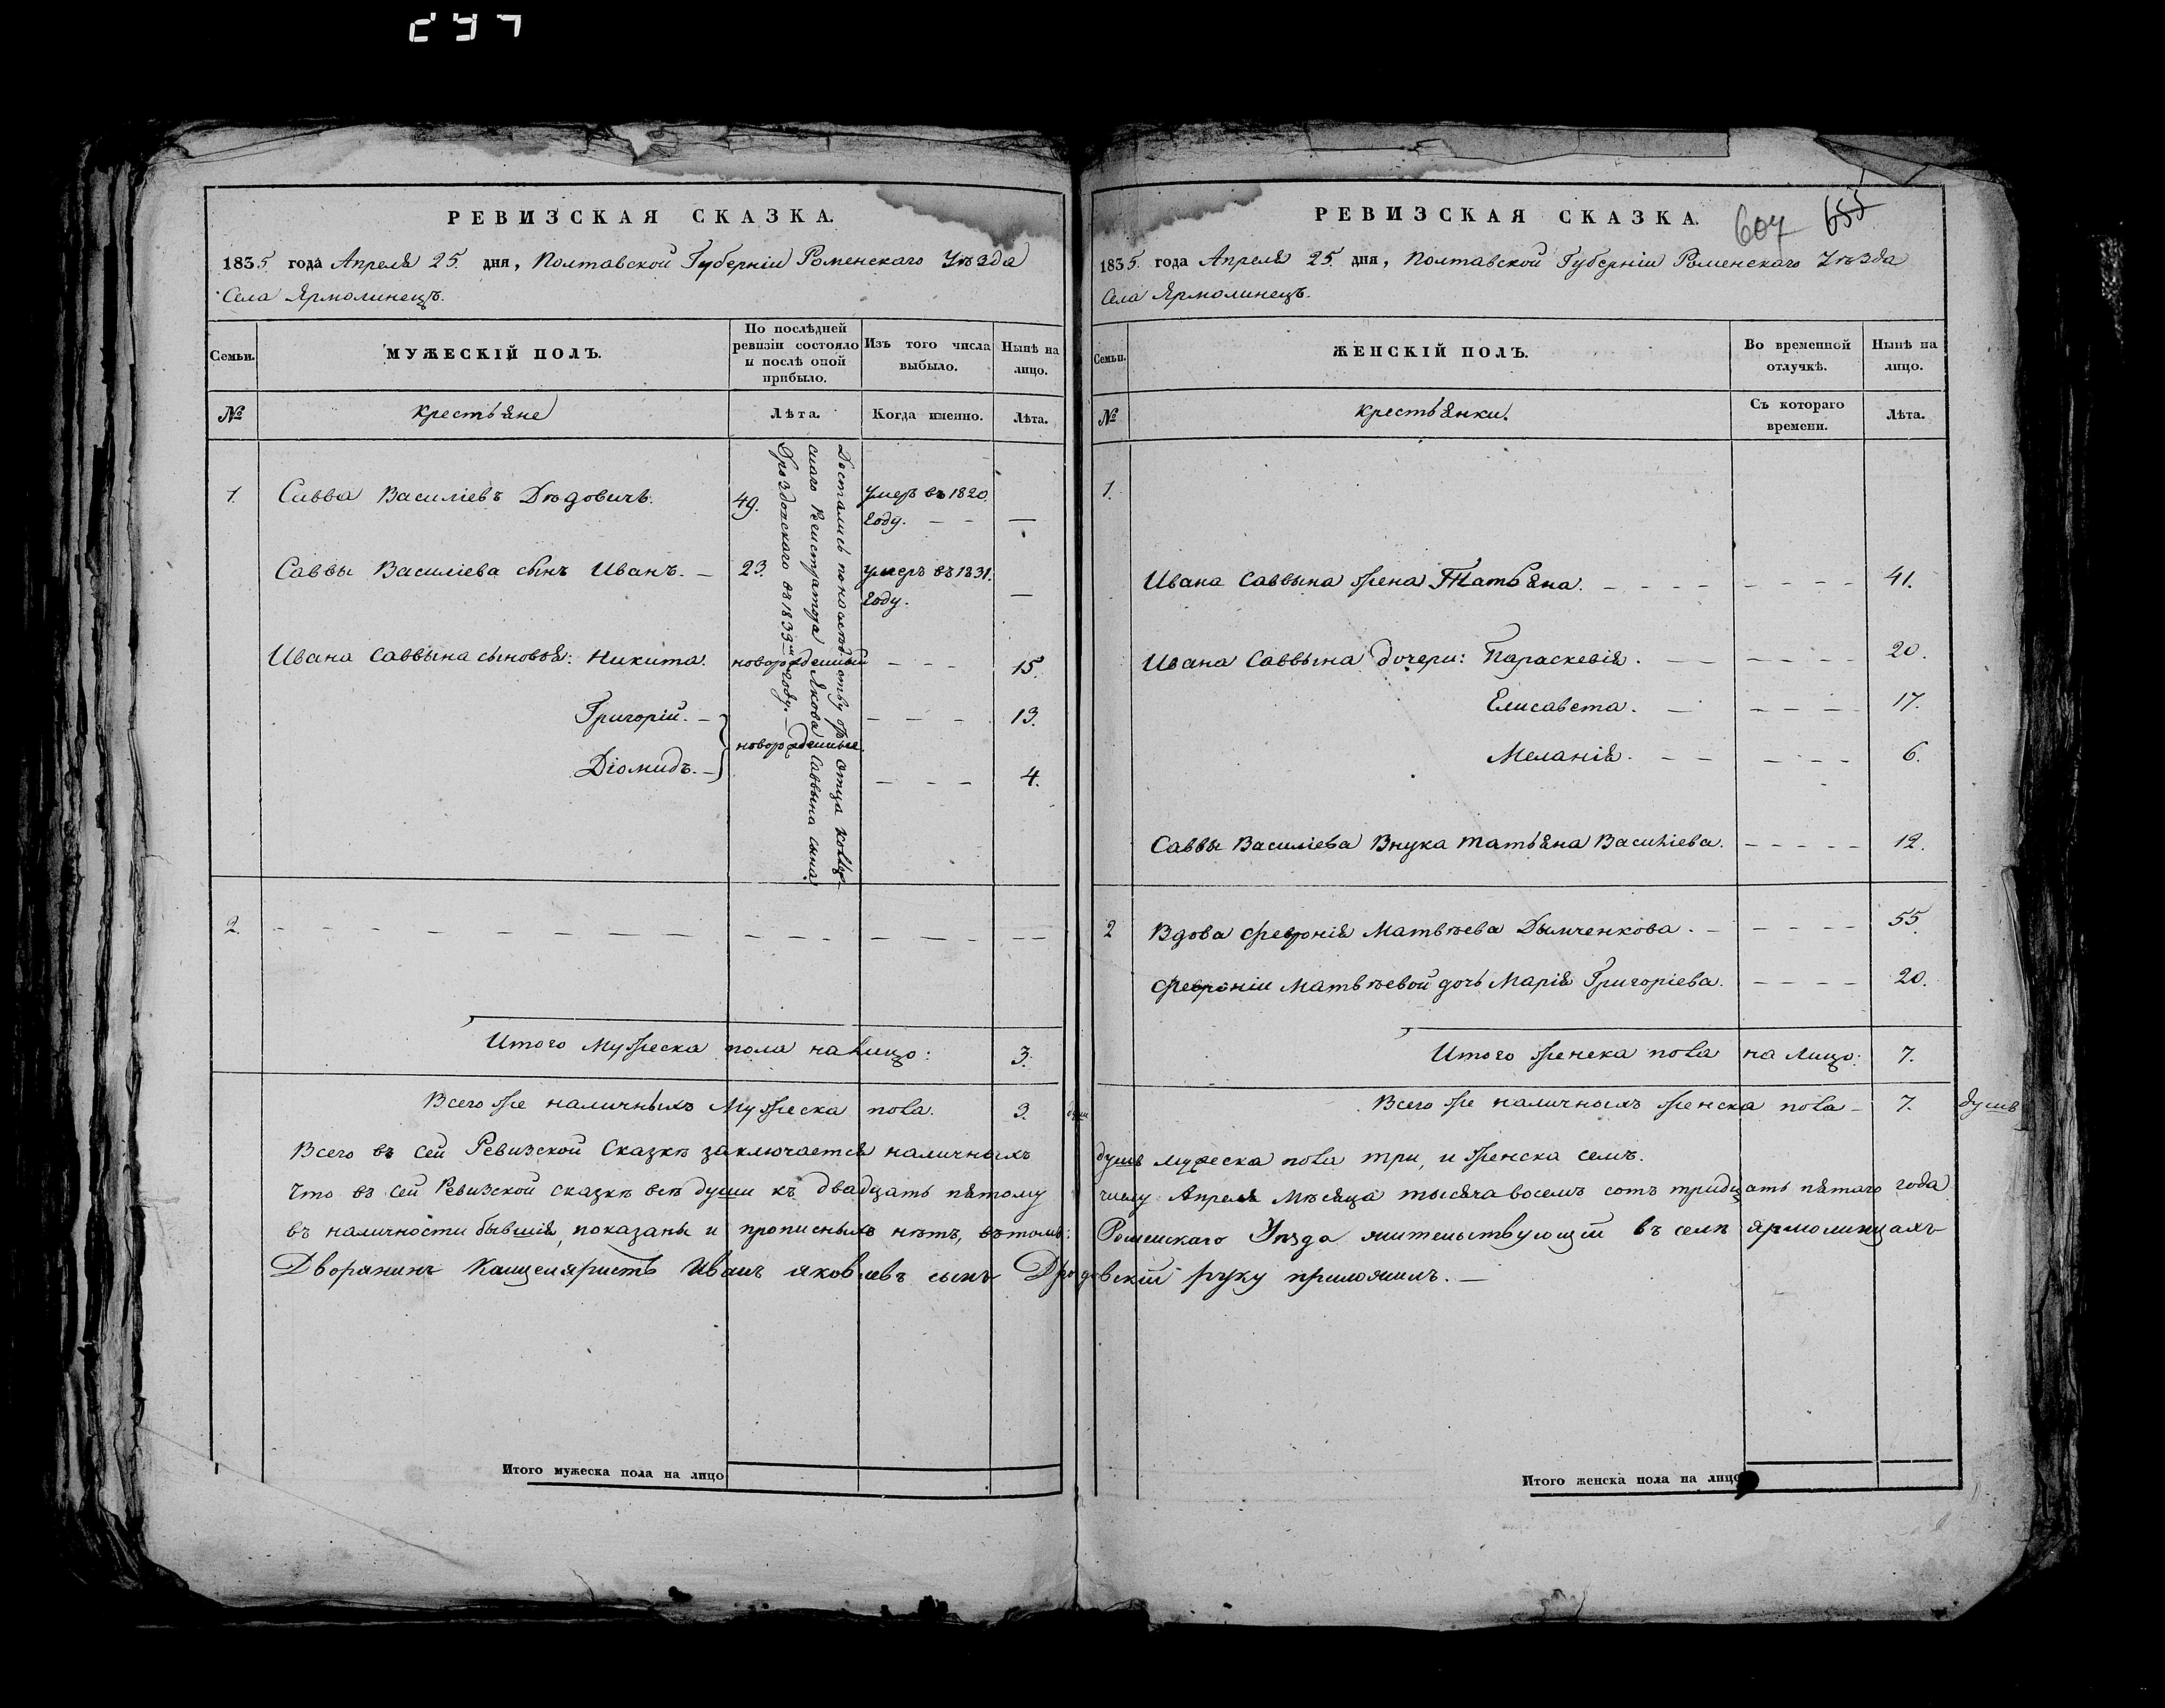 РЕВИЗСКАЯ СКАЗКА.
1835 года Апреля 25. дня, Полтавской Губерніи Роменскаго Уѣзда
Села Ярмолинецъ.
Семьи.
МУЖЕСКІЙ ПОЛЪ.
По послѣдней ревизіи состояло и послѣ оной прибыло.
Изъ того числа выбыло.
Нынѣ на лицо.
№
крестьяне
Лѣта.
Когда именно.
Лѣта.
1. Савва Василіевъ Дѣдовичъ. 49. Умеръ въ 1820. Году. — — —
Саввы Василіева сынъ Иванъ. — 23. Умеръ въ 1831. Году. —
Ивана Саввына сыновья: Никита. новорожденный — — — 15.
Григорій. — — — — 13.
новорожденные
Діомидъ. — — — — 4.
Достались по наслѣдству отъ отца
Регистратора Якова Саввына сына
въ 1833м Году. —
2.
Итого Мужеска пола на лицо: 3.
Всего же наличныхъ Мужеска пола. 3.
Всего въ сей Ревизской Сказкѣ заключается наличныхъ
Что въ сей Ревизской сказкѣ всѣ души къ двадцать пятому
въ наличности бывшія, показаны и прописныхъ нѣтъ, въ томъ:
Дворянинъ Канцеляристъ Иванъ Яковлевъ сынъ
РЕВИЗСКАЯ СКАЗКА.
607 655
1835. года Апреля 25. дня, Полтавской Губерніи Роменскаго Уѣзда
Села Ярмолинецъ.
Семьи.
ЖЕНСКІЙ ПОЛЪ.
Во временной отлучкѣ.
Нынѣ на лицо.
№
крестьянки.
Съ котораго времени.
Лѣта.
1.
Ивана Саввына жена Татьяна. — — — — 41.
Ивана Саввына дочери: Параскевія. — — — — 20.
Елисавета. — — — — 17.
Меланія. — — — — 6.
Саввы Василіева Внука Татьяна Василіева. — — — — 12.
2 Вдова Февронія Матвѣева Дымченкова. — — — — 55.
Февроніи Матвѣевой дочь Марія Григоріева. — — — — 20.
Итого женска пола на лицо: 7.
Всего же наличныхъ женска пола — 7. душъ
душъ мужеска пола три, и женска семъ.
числу Апреля Мѣсяца тысяча восемъ сотъ тридцать пятаго года
Роменскаго Уѣзда жительствующій въ селѣ Ярмолинцахъ
руку приложилъ. —
Итого мужеска пола на лицо
Итого женска пола на лицо